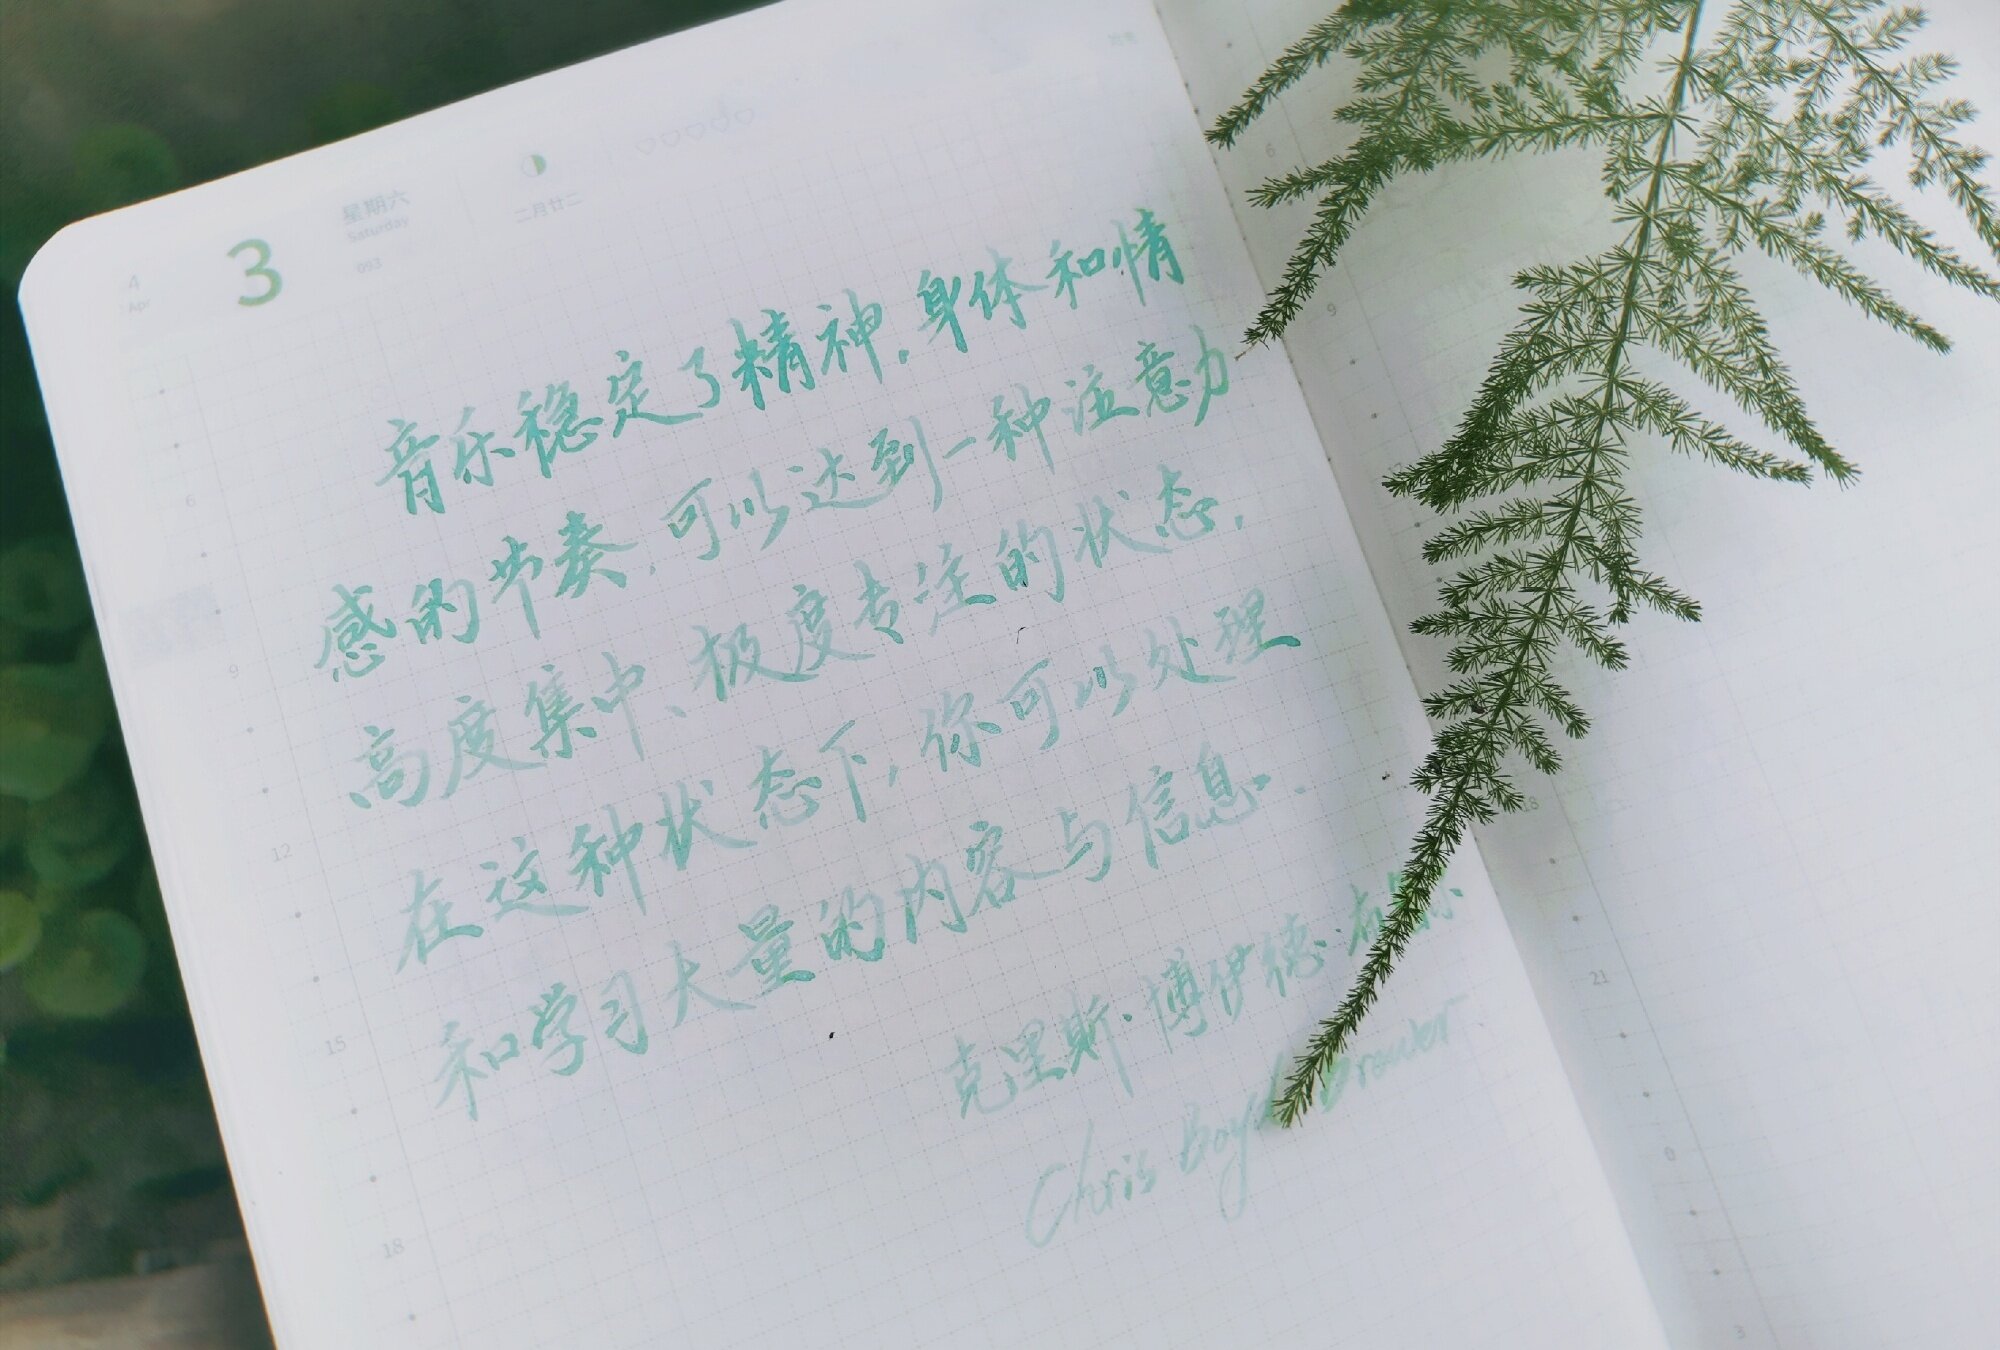 4
Apr
3
星期六
Saturday
093
二月廿二
音乐稳定了精神,身体和情
感的节奏,可以达到一种注意力
高度集中、极度专注的状态,
在这种状态下,你可以处理
和学习大量的内容与信息.
克里斯·博伊德·布
Chris Boyd Brewer
6
9
12
15
18
6
9
18
21
0
3